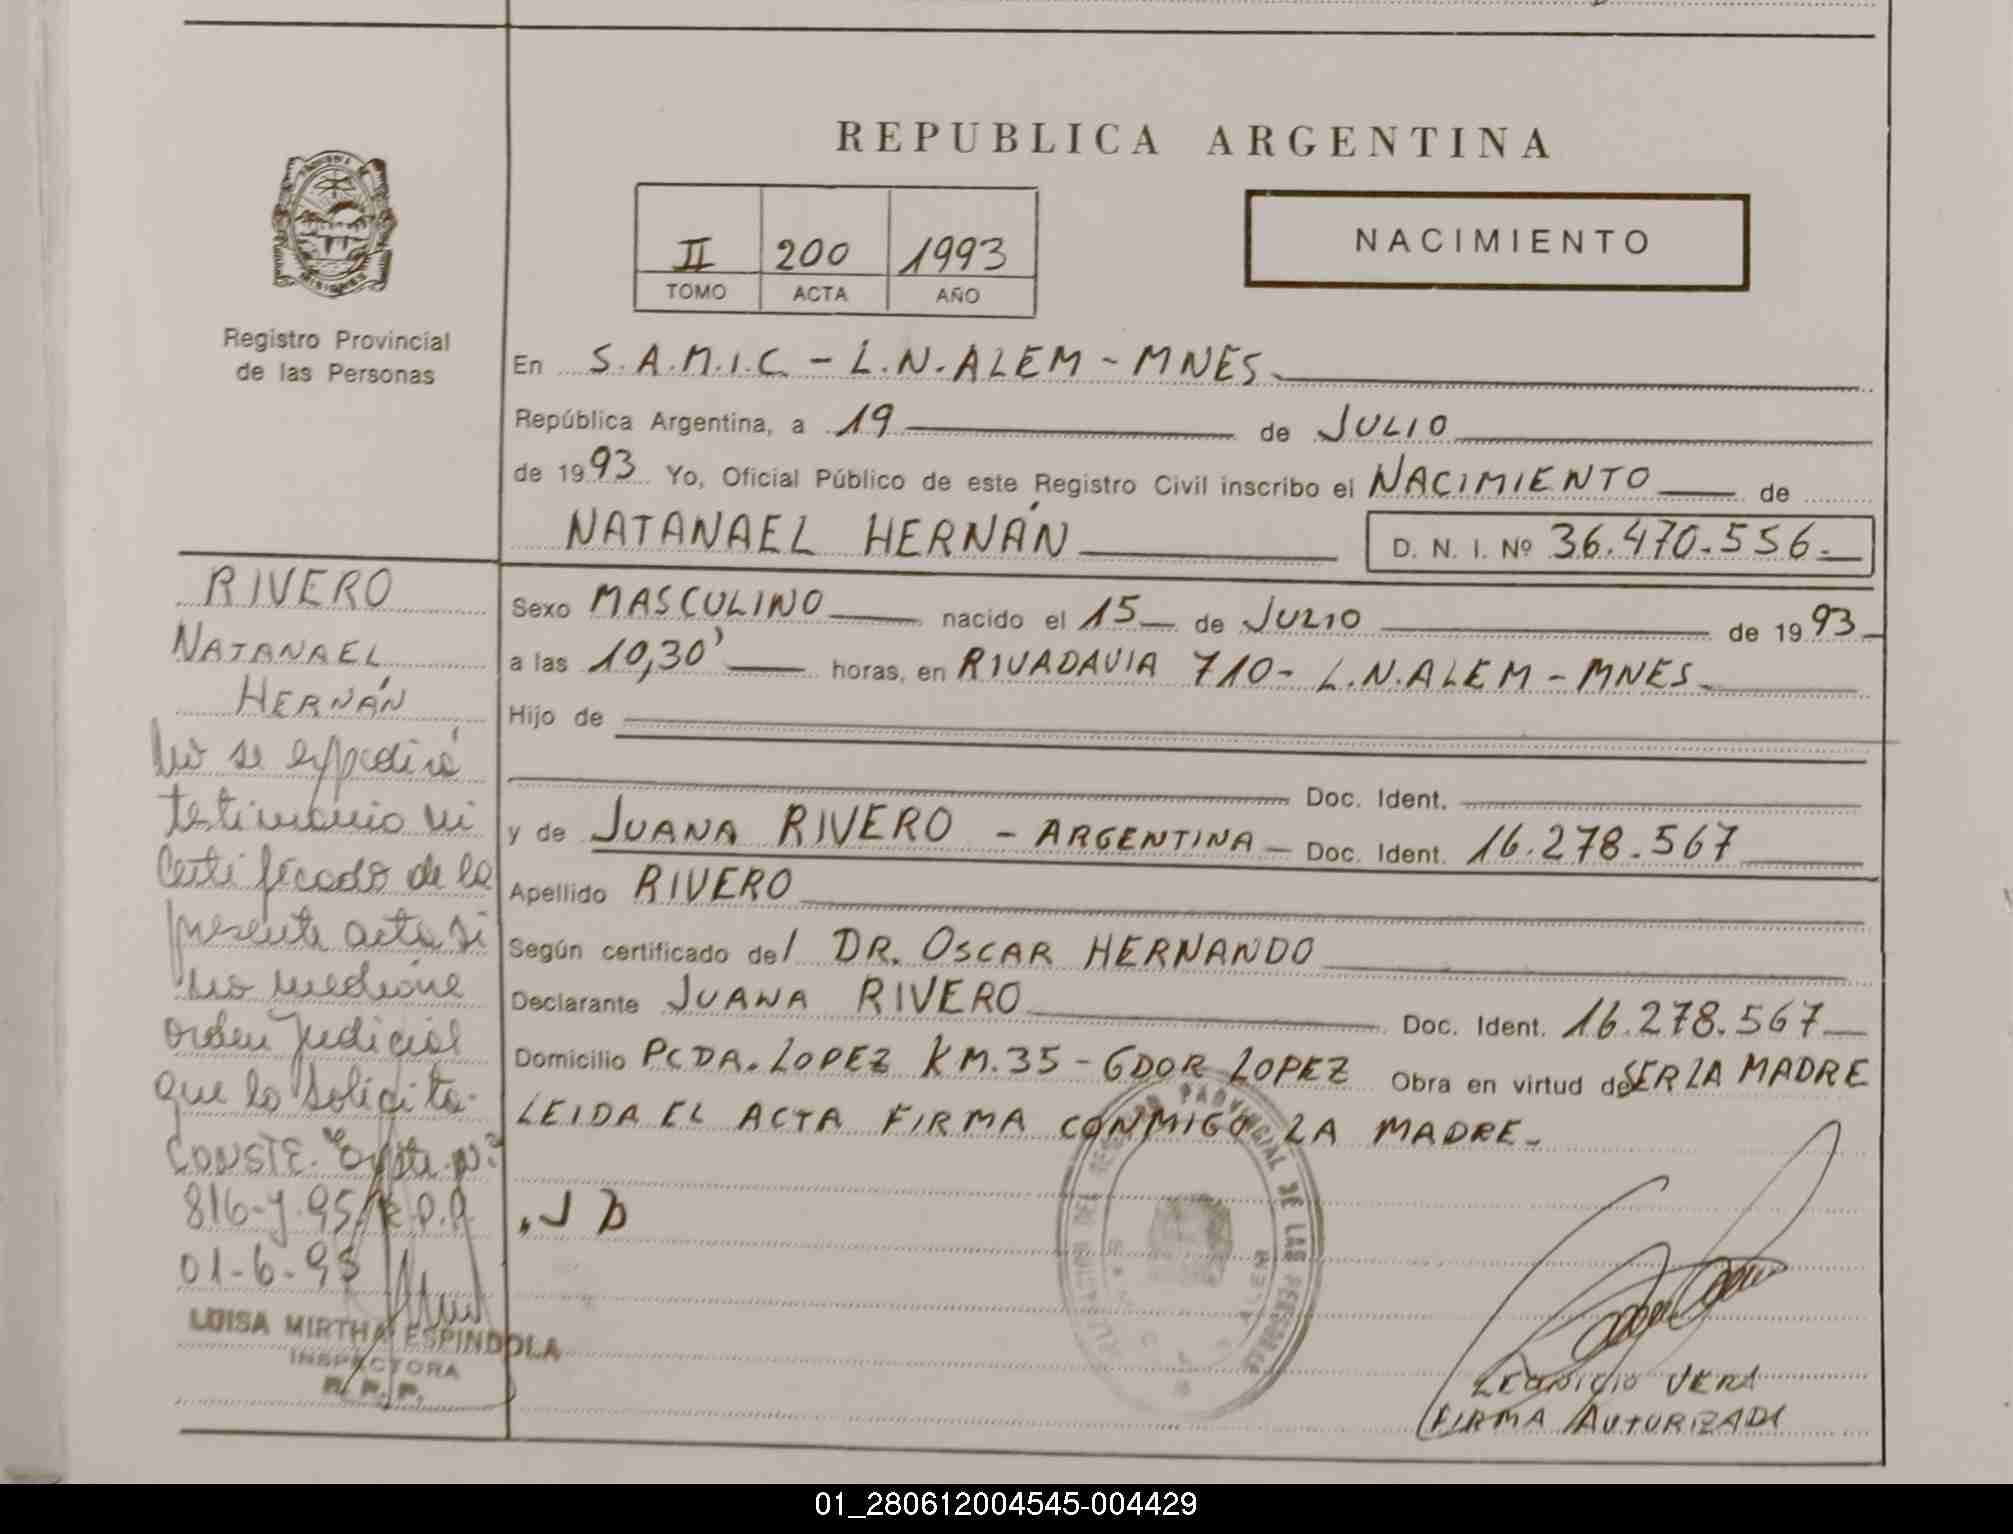 REPUBLICA ARGENTINA
II 200 1993
TOMO ACTA AÑO
NACIMIENTO
Registro Provincial
de las Personas
En S.A.M.I.C. - L.N.ALEM - MNES
República Argentina, a 19 de JULIO
de 1993 Yo, Oficial Público de este Registro Civil inscribo el NACIMIENTO de
NATANAEL HERNÁN D. N. I. Nº 36.470.556.-
Sexo MASCULINO nacido el 15 de JULIO de 1993
a las 10,30' horas, en RIVADAVIA 710- L.N.ALEM - MNES
Hijo de
Doc. Ident.
y de JUANA RIVERO - ARGENTINA - Doc. Ident. 16.278.567
Apellido RIVERO
Según certificado del DR. OSCAR HERNANDO
Declarante JUANA RIVERO Doc. Ident. 16.278.567
Domicilio PCDA. LOPEZ KM.35 - GDOR LOPEZ Obra en virtud de SER LA MADRE
LEIDA EL ACTA FIRMA CONMIGO LA MADRE.-
RIVERO
NATANAEL
HERNÁN
No se expedirá
testimonio ni
certificado de la
presente acta si
no mediare
orden judicial
que lo solicita.
CONSTE. Expte. Nº
816-y-95
01-6-95
LUISA MIRTHA ESPINDOLA
INSPECTORA
R. P. P.
PROVINCIAL DE LAS PERSONAS
LEONICIO VERA
FIRMA AUTORIZADA
01_280612004545-004429